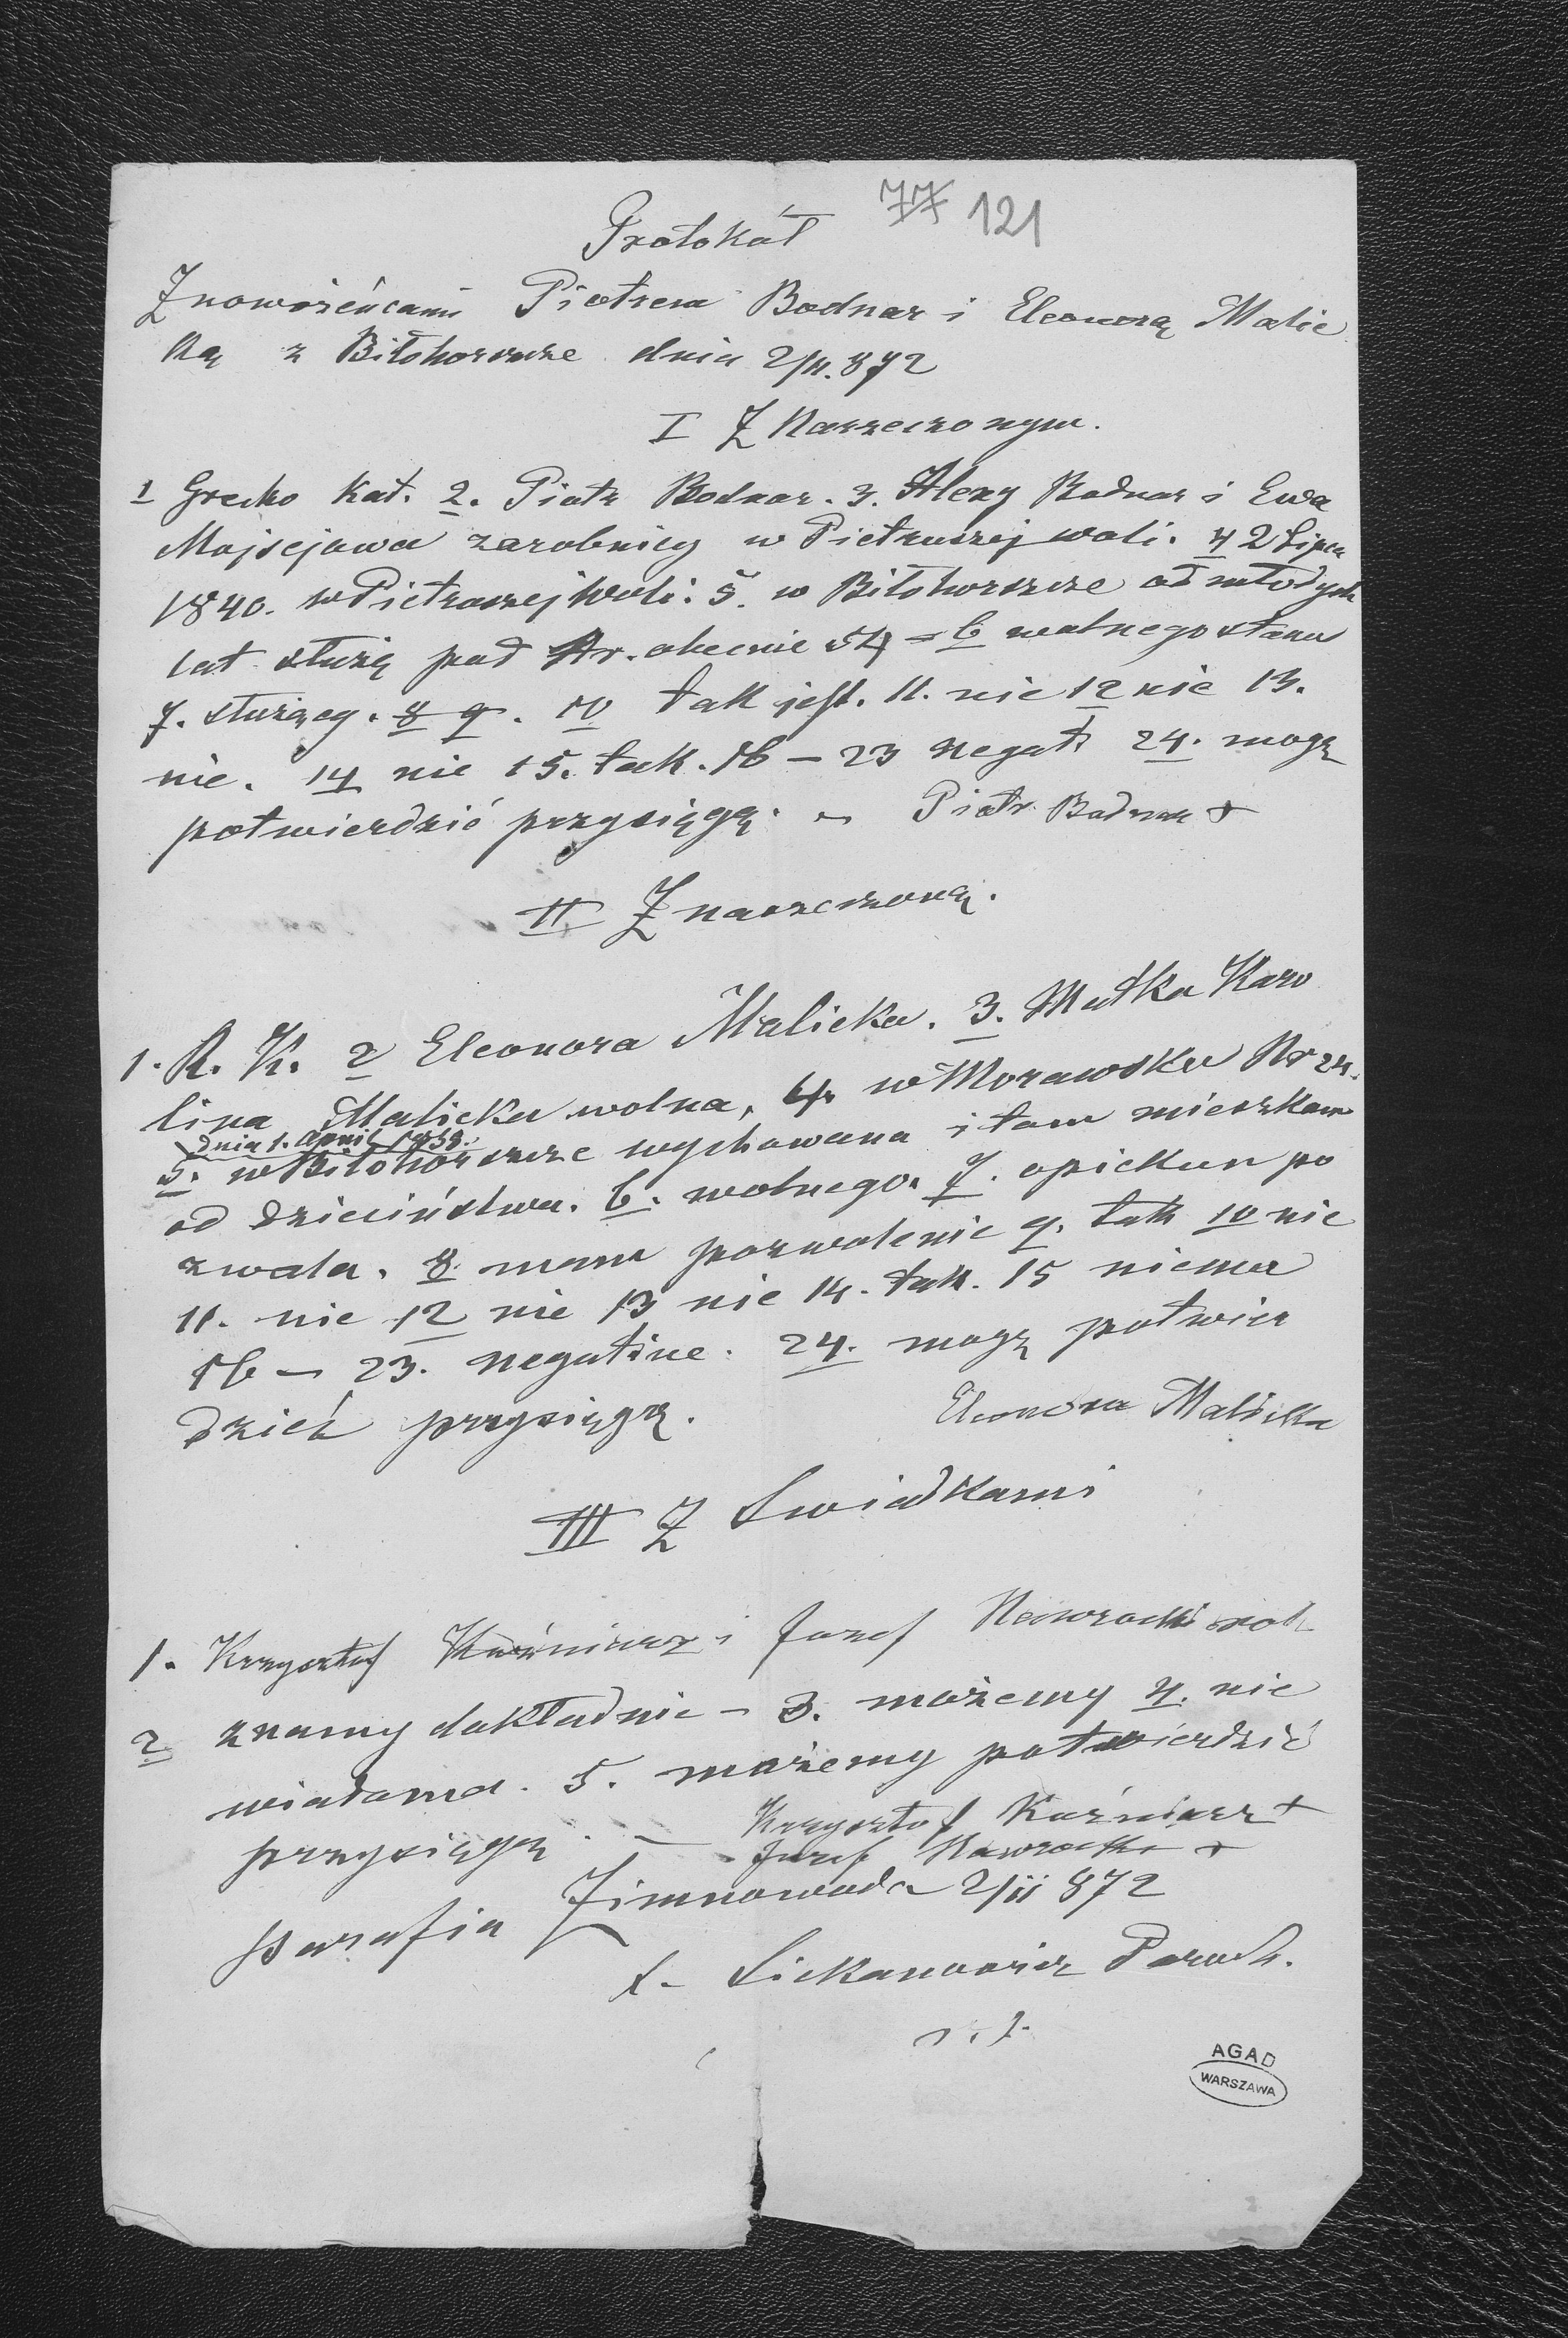 77 121
Protokół
Z nowożeńcami Piotrem Bodnar i Eleonorą Malic
ką z Biłohorszcze dnia 2/11. 872
I Z Narzeczonym.
1 Grecko Kat. 2. Piotr Bodnar. 3. Alexy Bodnar i Ewa
Mojsejowa zarobnicy w Pietruszej woli. 4 2 Lipca
1840. w Pietruszej Woli. 5. w Biłohorszcze od młodych
lat służę pod Nr. obecnie 54 – 6 wolnego stanu
7. służący. 8 9. 10 tak jest. 11. nie 12 nie 13.
nie. 14 nie 15. tak. 16 – 23 negat 24. mogę
potwierdzić przysięgą. – Piotr Bodnar +
II Z narzeczoną.
1. R. K. 2 Eleonora Malicka. 3. Matka Karo
lina Malicka wolna, 4. w Morawsku Nr 24.
dnia 1. April 1838.
5. w Biłohorszcze wychowana i tam mieszkam
od dzieciństwa. 6. wolnego. 7. opiekun po
zwala. 8. mam pozwolenie 9. tak 10 nie
11. nie 12 nie 13 nie 14. tak. 15 niema
16 – 23. negative. 24. mogę potwier
dzieć przysięgą.
Eleonora Malicka
III Z Swiadkami
1. Krzysztof Kuźniarz i Jozef Nawrocki
2 znamy dokładnie – 3. możemy 4. nie
wiadomo. 5. możemy potwierdzić
przysięgą. – Krzysztof Kuźniarz +
Jozef Nawrocki +
Parafia Zimnowoda 2/11 872
X. Siekanowicz Paroch.
AGAD
WARSZAWA